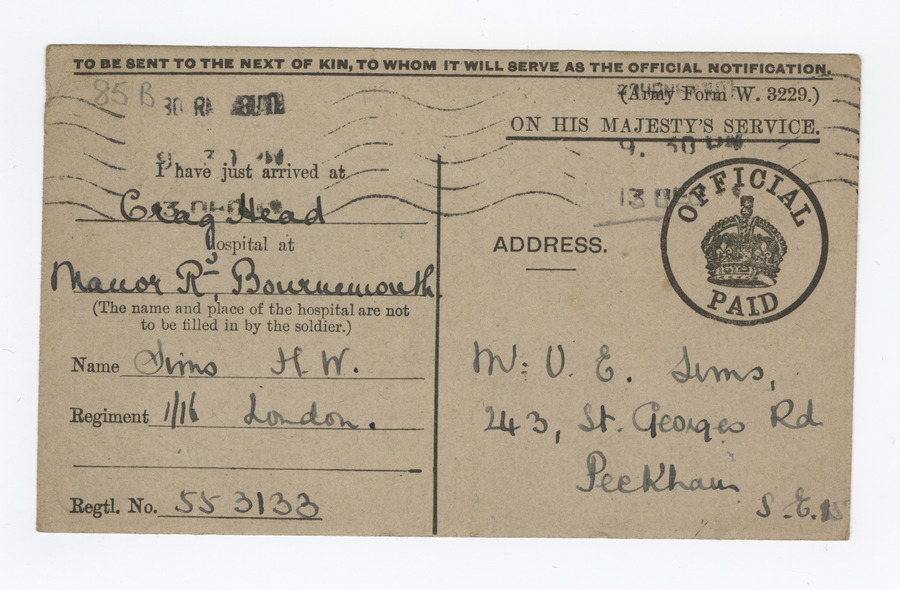 TO BE SENT TO THE NEXT OF KIN, TO WHOM IT WILL SERVE AS THE OFFICIAL NOTIFICATION.
85 B
(Army Form W. 3229.)
ON HIS MAJESTY'S SERVICE.
I have just arrived at
Crag Head
Hospital at
Manor Rd, Bournemouth
(The name and place of the hospital are not
to be filled in by the soldier.)
Name Sims H. W.
Regiment 1/16 London.
Regtl. No. 553133
9. 30 PM
13 DEC
OFFICIAL
PAID
ADDRESS.
Mr. V. E. Sims,
243, St. Georges Rd
Peckham
S.E. 15